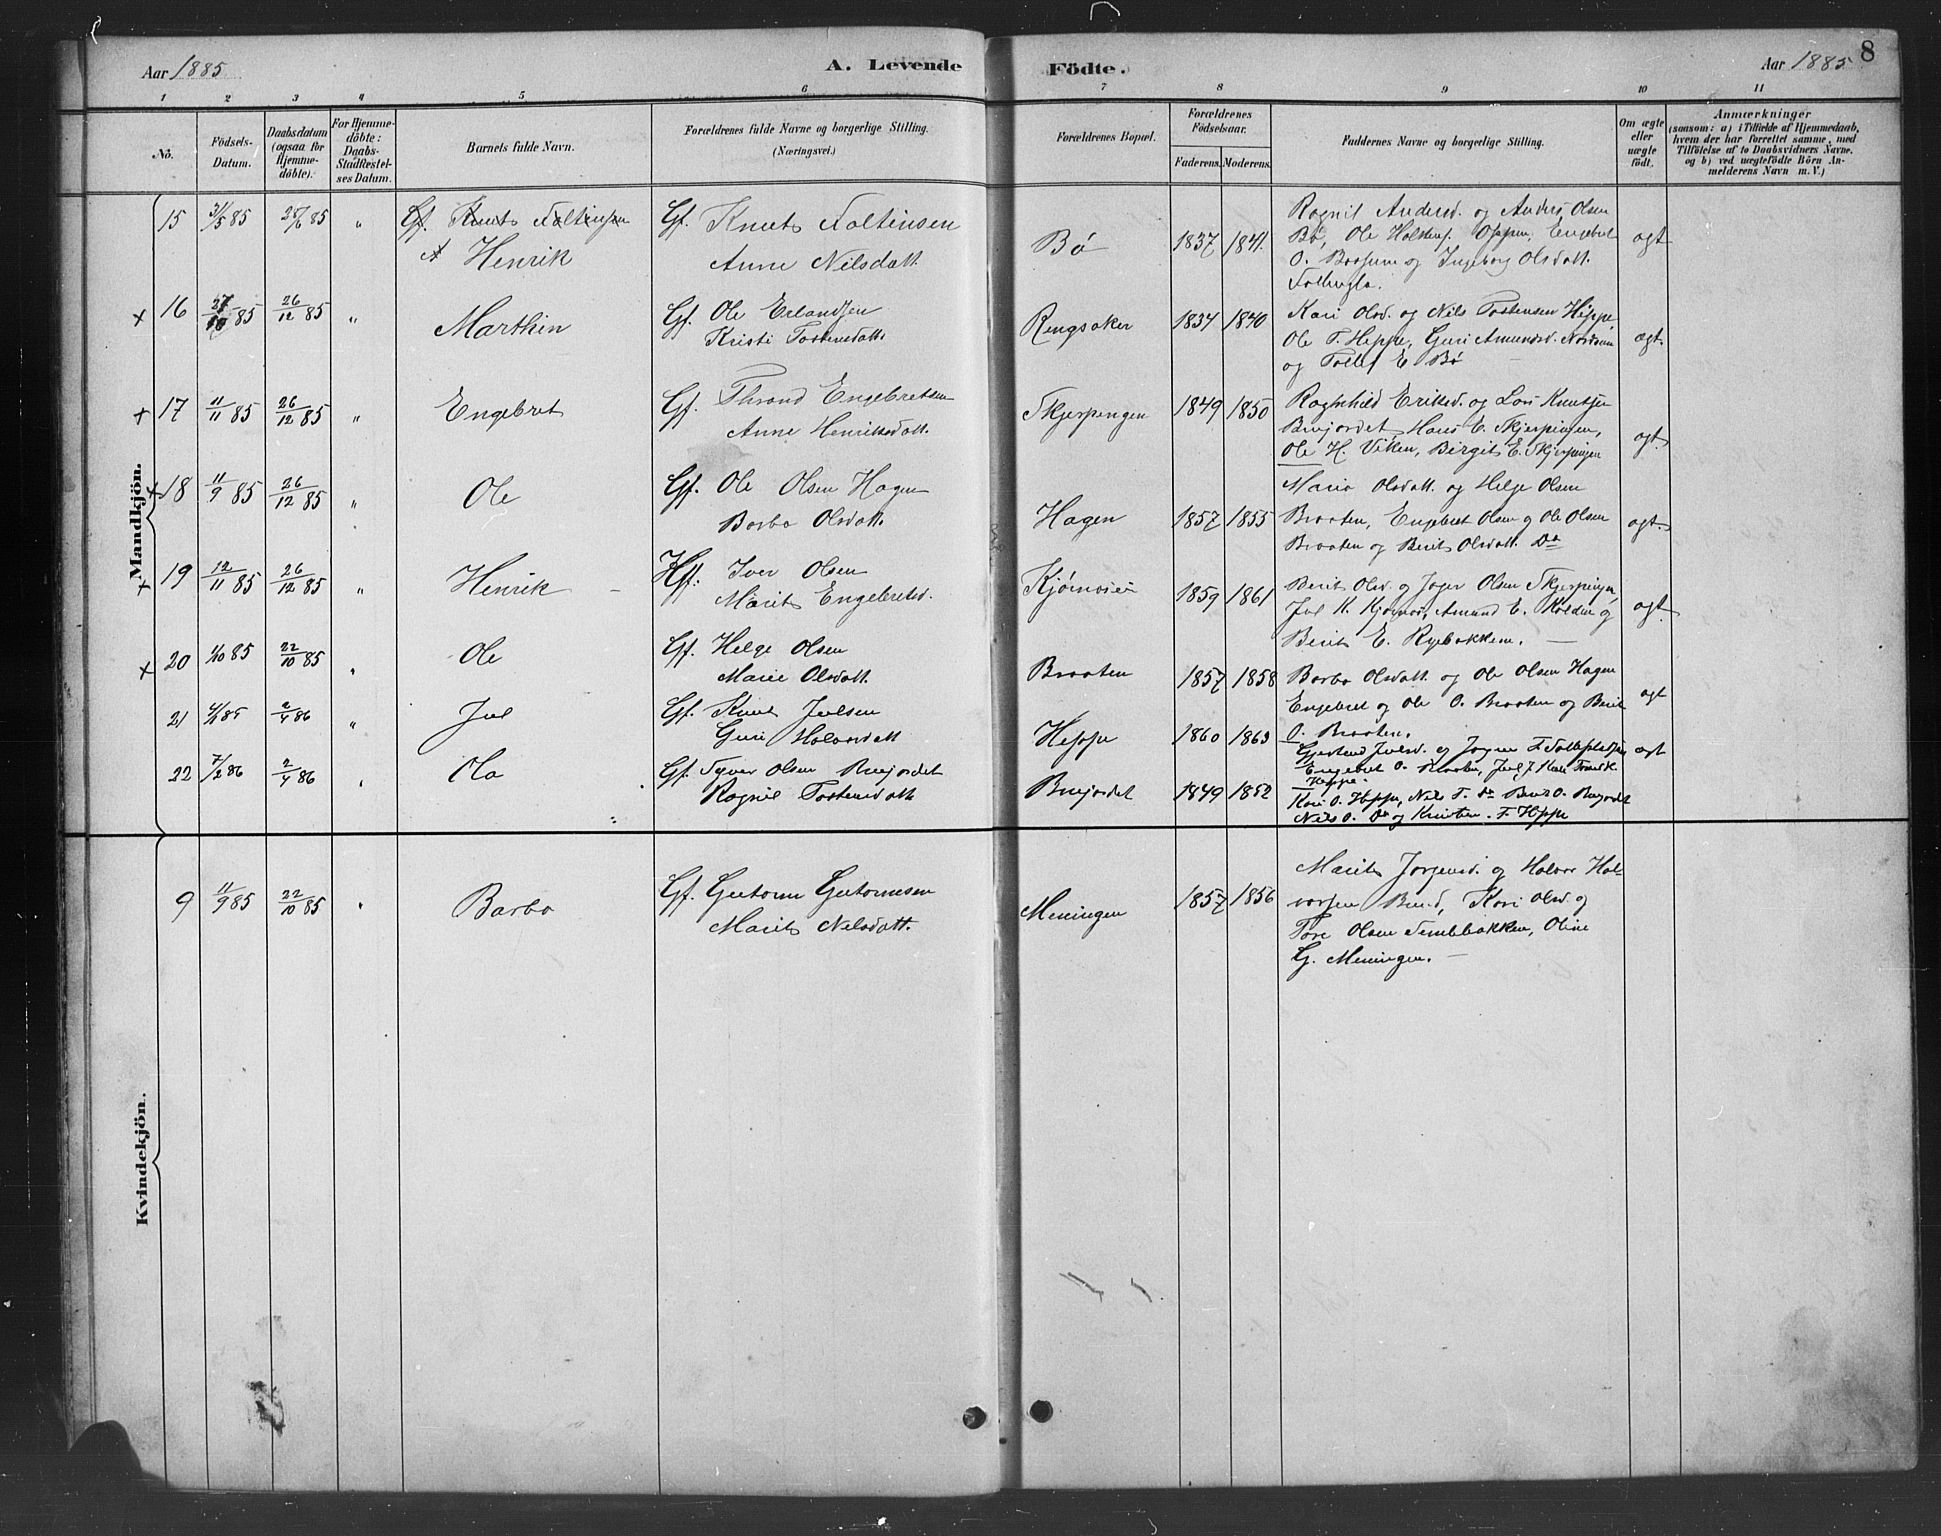 Aar 1885
A. Levende Födte.
Aar 1885
8
1 2 3 4 5 6 7 8 9 10 11
No.
Födsels-
Datum.
Daabsdatum
(ogsaa for
Hjemme-
döbte).
For Hjemme-
döbte:
Daabs-
Stadfæstel-
ses Datum.
Barnets fulde Navn.
Forældrenes fulde Navne og borgerlige Stilling.
(Næringsvei.)
Forældrenes Bopæl.
Forældrenes
Födselsaar.
Faderens. Moderens.
Faddernes Navne og borgerlige Stilling.
Om ægte
eller
uægte
födt.
Anmærkninger
(saasom: a) i Tilfælde af Hjemmedaab,
hvem der har forrettet samme, med
Tilföielse af to Daabsvidners Navne,
og b) ved uægtefödte Börn An-
melderens Navn m. V.)
Mandkjön.
15 31/5 85 85 " Gf. Knuts
Henrik
Gf. Knut
Anne Nilsdatt.
Bø 1837 1841
Ragnil Andersd. og Anders Olsen
Bø, Ole Engebret
O. og Ingeborg Olsdatt.
ægt
x 16 85 26/12 85 " Marthin
Gf. Ole Erlandsen
Kristi Tostensdatt.
Ringsaker 1834 1840
Kari Olsd. og Nils Tostensen Heppe
Ole T. Heppe, Guri Amundsd.
og E. Bø
ægt.
x 17 11/11 85 26/12 85 " Engebret
Gf. Thrond Engebretsen
Anne Henriksdatt.
Skjerpingen 1849 1850
Ragnhild Eriksd. og Lars Knutsen
Brujordet Hans E. Skjerpingen,
Ole H. Viken, Birgit E. Skjerpingen
ægt
x 18 11/9 85 26/12 85 " Ole
Gf. Ole Olsen Hagen
Barbo Olsdatt.
Hagen 1857 1855
Marie Olsdatt. og Helge Olsen
Braaten, Engebret Olsen og Ole Olsen
Braaten og Berit Olsdatt. Do
ægt.
x 19 12/11 85 26/12 85 " Henrik
Hf. Iver Olsen
Marit Engebretsd.
1859 1861
Berit Olsd. og Olsen Skjerpingen
Amund E. og
Berit E. Ryebakken.
ægt
x 20 1/10 85 22/10 85 " Ole
Gf. Helge Olsen
Marie Olsdatt.
Braaten 1857 1858
Barbo Olsdatt. og Ole Olsen Hagen
Engebret og Ole O. Braaten og Berit
O. Braaten.
ægt
21 85 2/4 86 " Jul
Gf. Knut Julsen
Guri
Heppe 1860 1863
Julsd. og
Engebret O. Braaten,
Heppe.
ægt
22 7/2 86 2/4 86 Ola
Gf. Olsen Brujordet
Ragnil Tostensdatt.
Brujordet 1849 1852
Kari O. Heppe, Nils T. Do Berit O. Brujordet
Nils O. Do og T. Heppe
Kvindekjön.
9 11/9 85 22/10 85 " Barbo
Gf. Guttorm Guttormsen
Marit Nilsdatt.
Meningen 1857 1856
Marit Jørgensd. og Halvor Hal-
vorsen Kari Olsd. og
Tore Olsen Oline
G. Meningen.